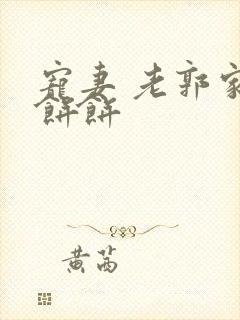 寵妻 老郭家
餅餅
黃萵